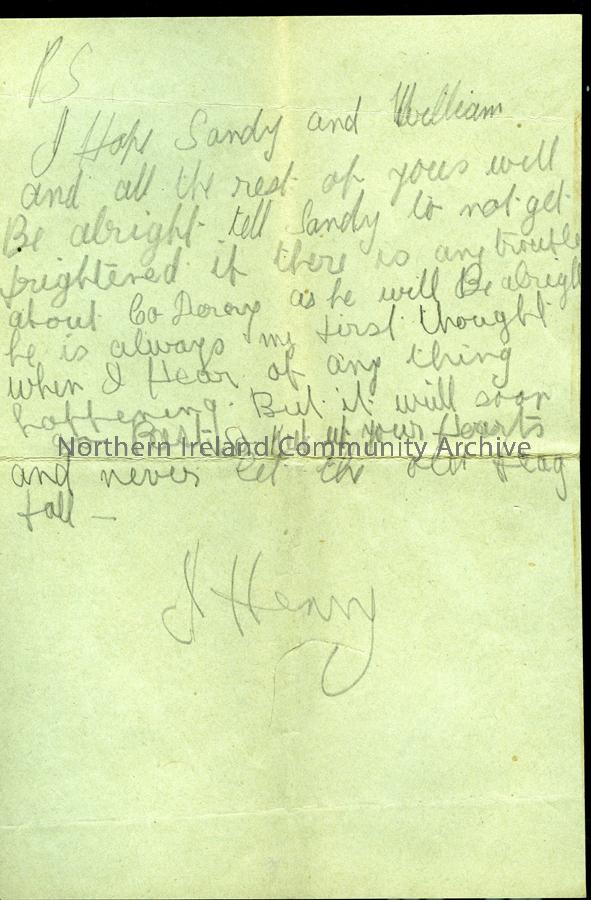 PS
I Hope Sandy and William
and all the rest of yous will
Be alright tell Sandy to not get
frightened if there is any trouble
about Co Derry as he will Be alright
he is always my first thought
when I Hear of any thing
happening. But it will soon
Be Past up your Hearts
Northern Ireland Community Archive
and never let the old Flag
fall —
J Henry